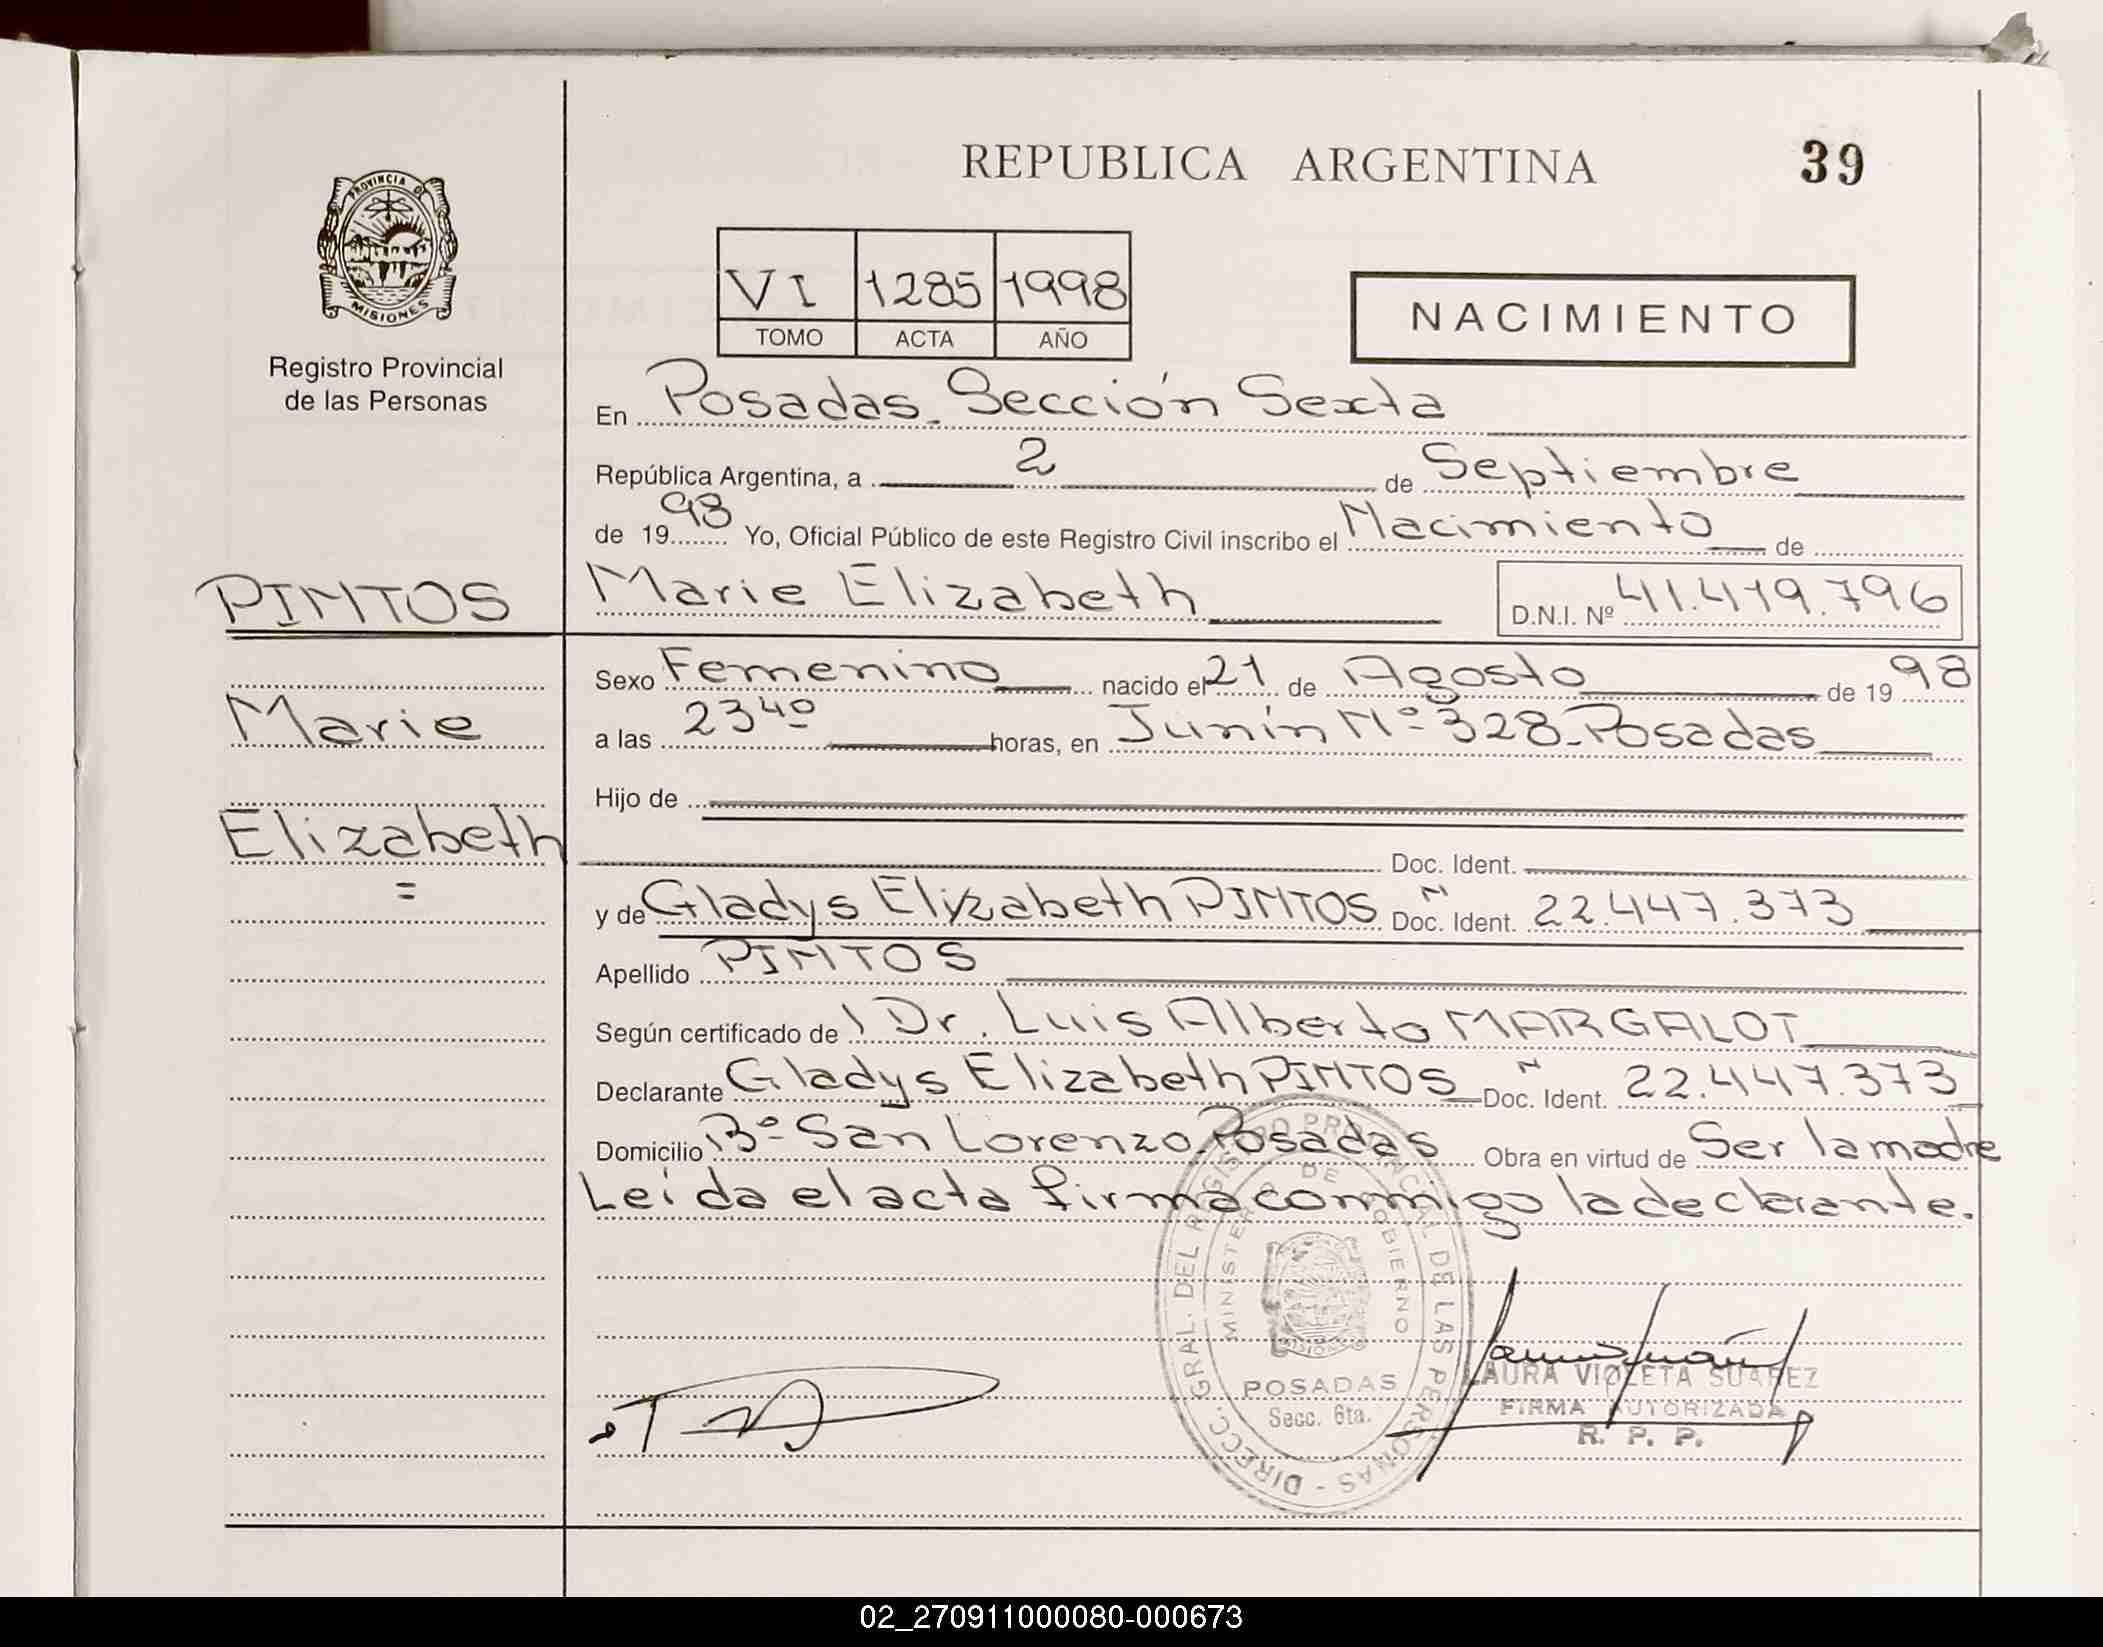 REPUBLICA ARGENTINA
39
PROVINCIA DE
MISIONES
Registro Provincial
de las Personas
VI 1285 1998
TOMO ACTA AÑO
NACIMIENTO
En Posadas. Sección Sexta
República Argentina, a 2 de Septiembre
de 1998 Yo, Oficial Público de este Registro Civil inscribo el Nacimiento de
PINTOS
Marie Elizabeth D.N.I. Nº 41.419.796
Sexo Femenino nacido el 21 de Agosto de 1998
Marie
a las 23 40 horas, en Junín Nº 328 - Posadas
Hijo de
Elizabeth
=
Doc. Ident.
y de Gladys Elizabeth PINTOS N Doc. Ident. 22.447.373
Apellido PINTOS
Según certificado de l Dr. Luis Alberto MARGALOT
Declarante Gladys Elizabeth PINTOS N Doc. Ident. 22.447.373
Domicilio Bº San Lorenzo. Posadas Obra en virtud de Ser la madre
Leída el acta firma conmigo la declarante.
DIRECC. GRAL. DEL REGISTRO PROVINCIAL DE LAS PERSONAS -
MINISTERIO DE GOBIERNO
MISIONES
POSADAS
Secc. 6ta.
LAURA VIOLETA SUAREZ
FIRMA AUTORIZADA
R. P. P.
02_270911000080-000673